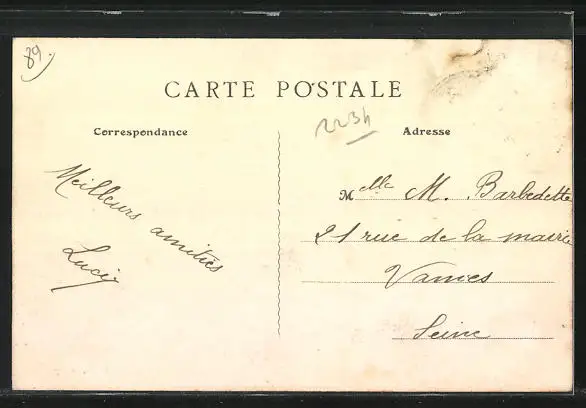 89
CARTE POSTALE
223h
Correspondance
Adresse
Meilleurs amitiés
Lucie
Melle M. Barbedette
21 rue de la mairie
Vanves
Seine